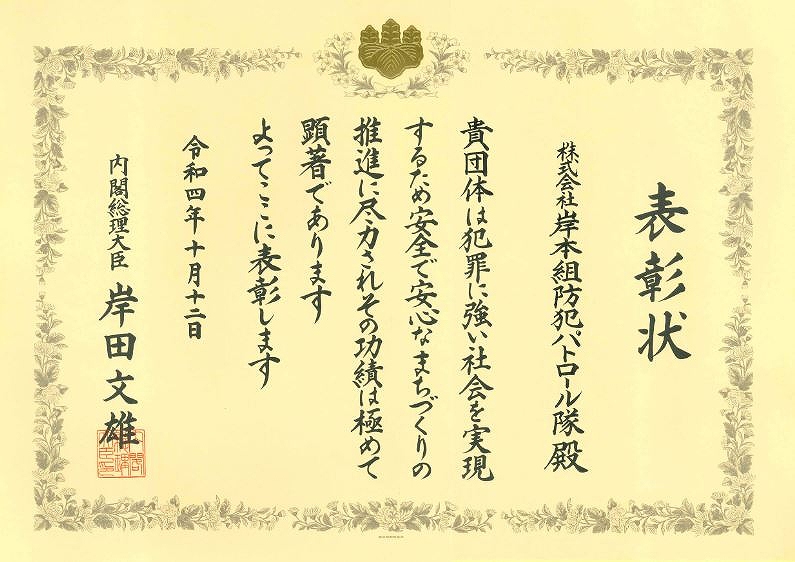 表彰状
株式会社岸本組防犯パトロール隊殿
貴団体は犯罪に強い社会を実現
するため安全で安心なまちづくりの
推進に尽力されその功績は極めて
顕著であります
よってここに表彰します
令和四年十月十二日
内閣総理大臣 岸田文雄